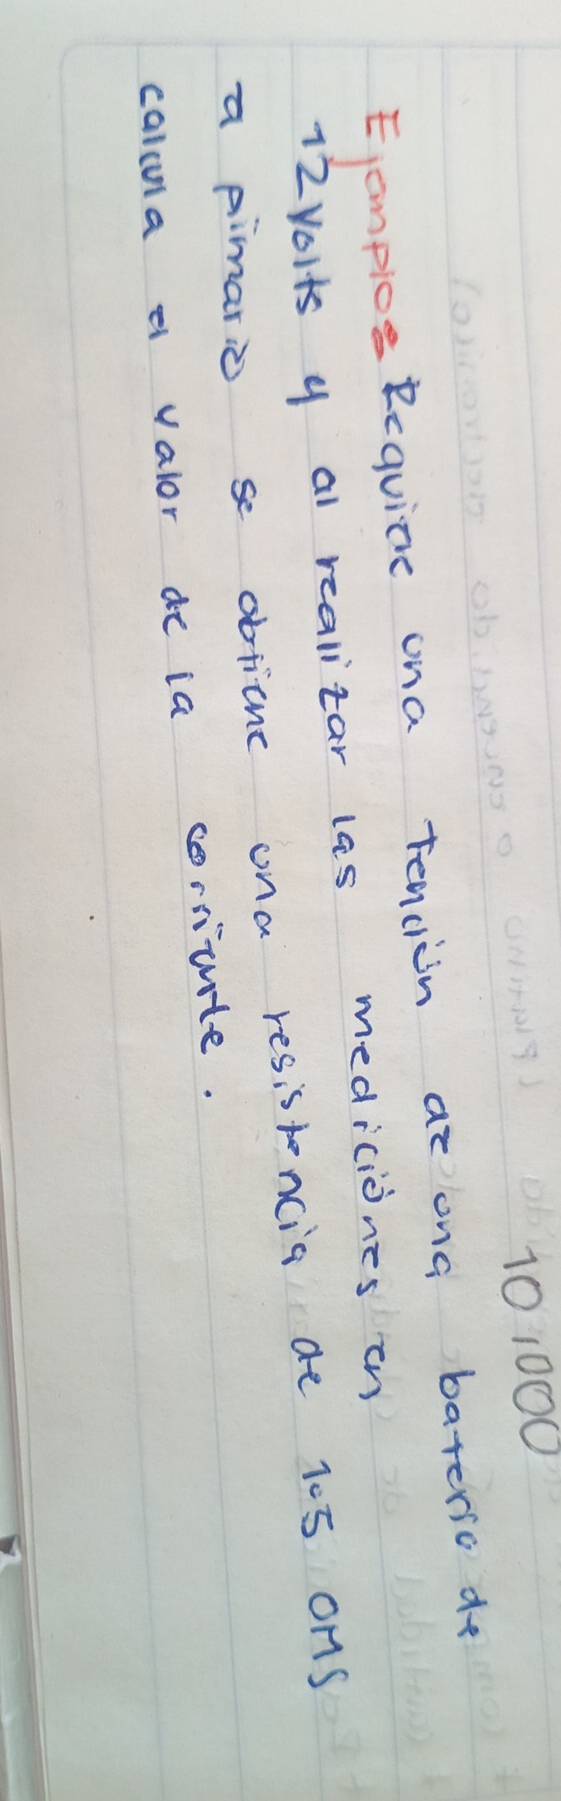 10,000
Ejemplo: Requiere una tención de una bateria de
12 volts y al realizar las mediciónes en
el primario se obtiene una resistencia de 1.5 OMS
calcula el valor de la corriente.